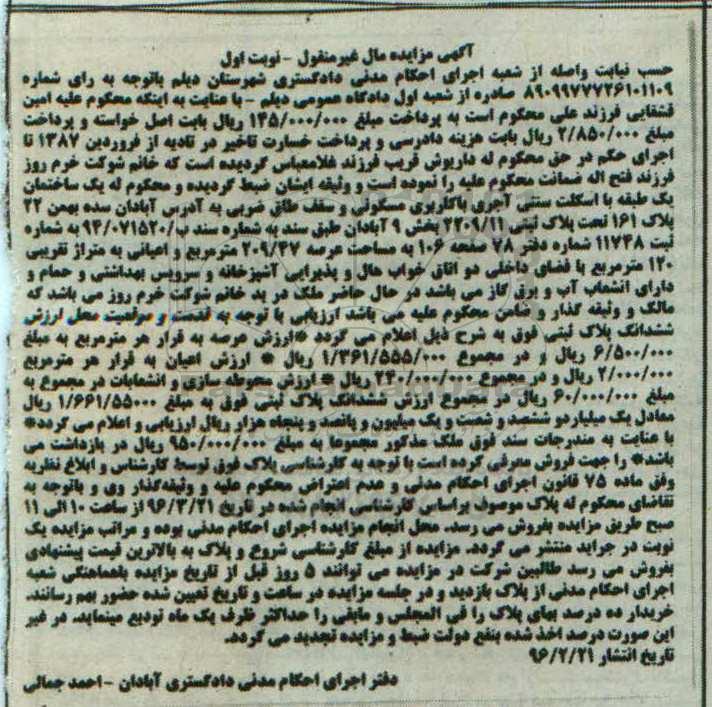 آگهی مزایده مال غیرمنقول - نوبت اول
حسب نیابت واصله از شعبه اجرای احکام مدنی دادگستری شهرستان دیلم باتوجه به رای شماره
۸۹۰۹۹۷۷۷۲۶۱۰۱۱۰۹ صادره از شعبه اول دادگاه عمومی دیلم - با عنایت به اینکه محکوم علیه امین
قشقایی فرزند علی محکوم است به پرداخت مبلغ ۱۴۵/۰۰۰/۰۰۰ ریال بابت اصل خواسته و پرداخت
مبلغ ۲/۸۵۰/۰۰۰ ریال بابت هزینه دادرسی و پرداخت خسارت تاخیر در تادیه از فروردین ۱۳۸۷ تا
اجرای حکم در حق محکوم له داریوش قریب فرزند غلامعباس گردیده است که خانم شوکت خرم روز
فرزند فتح اله ضمانت محکوم علیه را نموده است و وثیقه ایشان ضبط گردیده و محکوم له یک ساختمان
یک طبقه با اسکلت سنتی آجری باکاربری مسکونی و سقف طاق ضربی به آدرس آبادان سده بهمن ۲۲
پلاک ۱۶۱ تحت پلاک ثبتی ۲۲۰۷/۱۱ بخش ۹ آبادان طبق سند به شماره سند ب/۹۴/۰۷۱۵۲۰ به شماره
ثبت ۱۱۷۴۸ شماره دفتر ۷۸ صفحه ۱۰۶ به مساحت عرصه ۲۰۹/۴۷ مترمربع و اعیانی به متراژ تقریبی
۱۲۰ مترمربع با فضای داخلی دو اتاق خواب هال و پذیرایی آشپزخانه و سرویس بهداشتی و حمام و
دارای انشعاب آب و برق گاز می باشد در حال حاضر ملک در ید خانم شوکت خرم روز می باشد که
مالک و وثیقه گذار و ضامن محکوم علیه می باشد ارزیابی با توجه به قدمت و موقعیت محل ارزش
ششدانگ پلاک ثبتی فوق به شرح ذیل اعلام می گردد *ارزش عرصه به قرار هر مترمربع به مبلغ
۶/۵۰۰/۰۰۰ ریال و در مجموع ۱/۳۶۱/۵۵۵/۰۰۰ ریال * ارزش اعیان به قرار هر مترمربع
۲/۰۰۰/۰۰۰ ریال و در مجموع ۲۴۰/۰۰۰/۰۰۰ ریال * ارزش محوطه سازی و انشعابات در مجموع به
مبلغ ۶۰/۰۰۰/۰۰۰ ریال در مجموع ارزش ششدانگ پلاک ثبتی فوق به مبلغ ۱/۶۶۱/۵۵۰۰۰ ریال
معادل یک میلیاردو ششصد و شصت و یک میلیون و پانصد و پنجاه هزار ریال ارزیابی و اعلام می گردد*
با عنایت به مندرجات سند فوق ملک مذکور مجموعا به مبلغ ۹۵۰/۰۰۰/۰۰۰ ریال در بازداشت می
باشد* را جهت فروش معرفی کرده است با توجه به کارشناسی پلاک فوق توسط کارشناس و ابلاغ نظریه
وفق ماده ۷۵ قانون اجرای احکام مدنی و عدم اعتراض محکوم علیه و وثیقه‌گذار وی و باتوجه به
تقاضای محکوم له پلاک موصوف براساس کارشناسی انجام شده در تاریخ ۹۶/۳/۲۱ از ساعت ۱۰ الی ۱۱
صبح طریق مزایده بفروش می رسد. محل انجام مزایده اجرای احکام مدنی بوده و مراتب مزایده یک
نوبت در جراید منتشر می گردد. مزایده از مبلغ کارشناسی شروع و پلاک به بالاترین قیمت پیشنهادی
بفروش می رسد طالبین شرکت در مزایده می توانند ۵ روز قبل از تاریخ مزایده باهماهنگی شعبه
اجرای احکام مدنی از پلاک بازدید و در جلسه مزایده در ساعت و تاریخ تعیین شده حضور بهم رسانند.
خریدار ده درصد بهای پلاک را فی المجلس و مابقی را حداکثر ظرف یک ماه تودیع مینماید. در غیر
این صورت درصد اخذ شده بنفع دولت ضبط و مزایده تجدید می گردد.
تاریخ انتشار ۹۶/۲/۲۱
دفتر اجرای احکام مدنی دادگستری آبادان - احمد جمالی